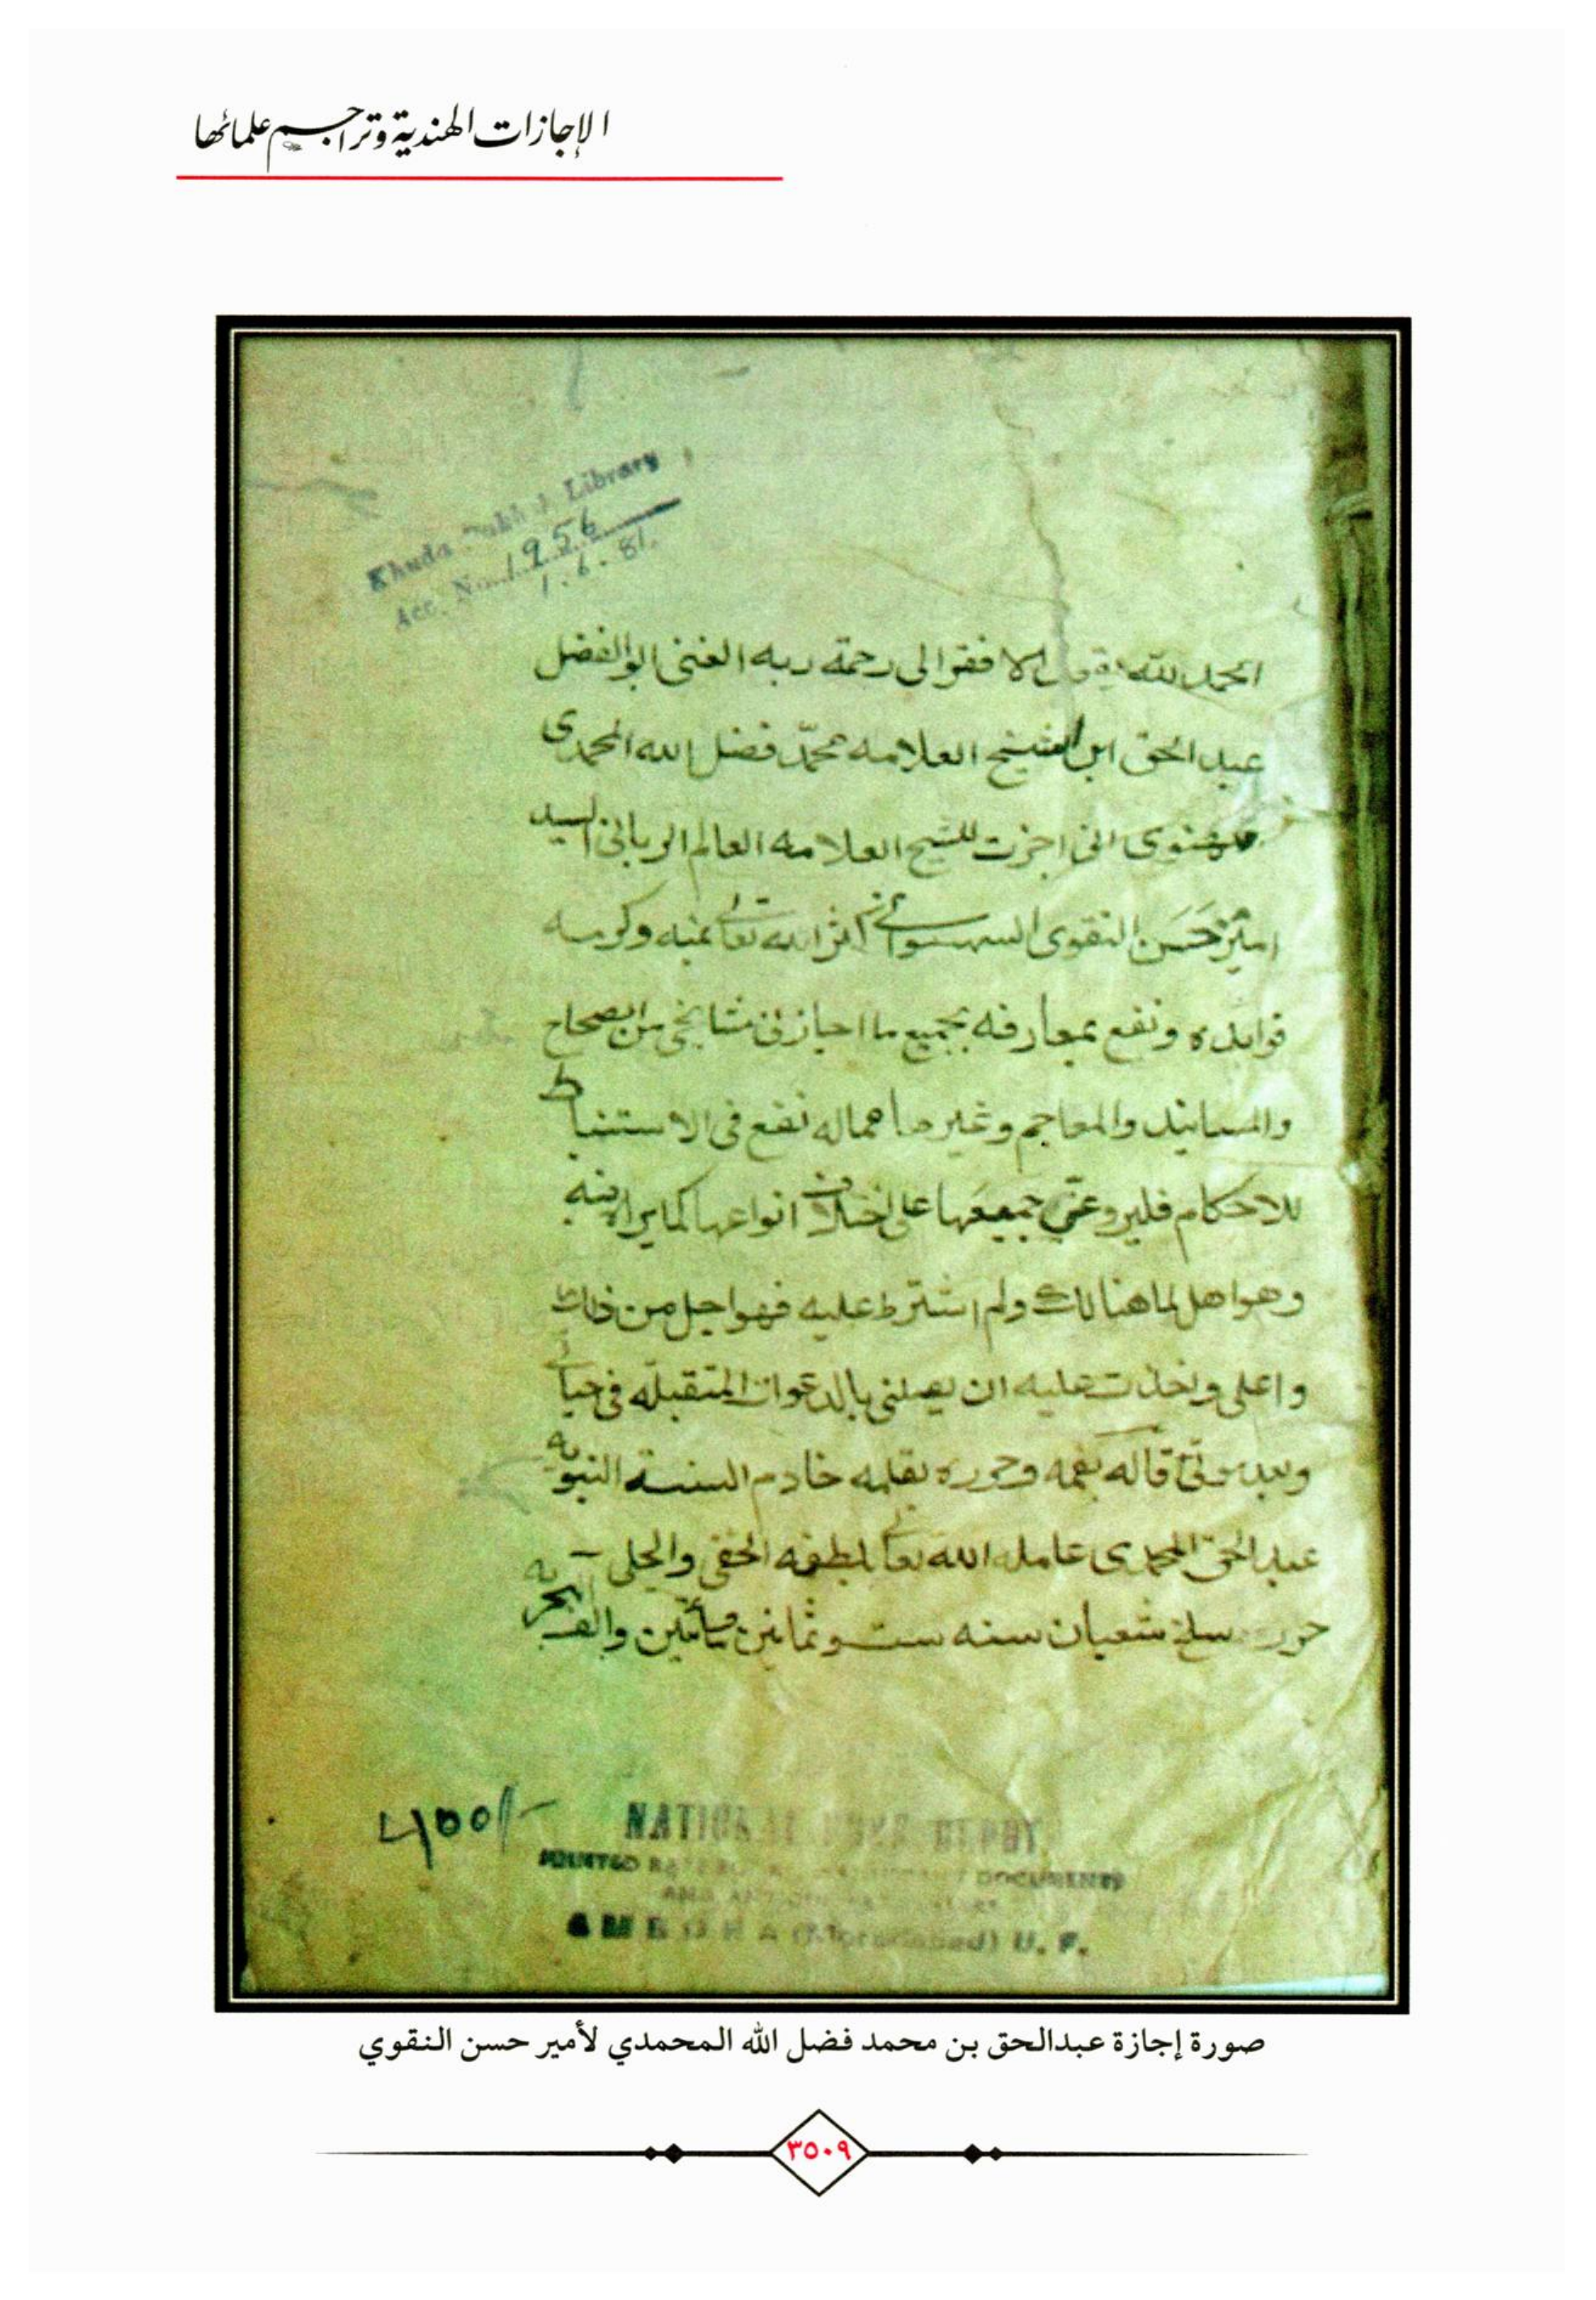 الإجازات الهندية وتراجم علمائها
Library
Acc. No. 1956
1.6.81.
الحمد لله يقول الافقر الى رحمة ربه الغنى ابو الفضل
عبد الحق ابن الشيخ العلامه محمّد فضل الله المحمدى
انى اجزت للشيخ العلامه العالم الربانى السيد
امير حَسَن النقوى السهسوانى اكثر الله تعالى بمنه وكرمه
فوايده ونفع بمعارفه بجميع ما اجازنى مشايخى من الصحاح
والمسانيد والمعاجم وغيرها مماله نفع فى الاستنباط
للاحكام فليروعنّى جميعَها على اختلاف انواعها كما يراه منه
وهو اهل لما هنالك ولم اشترط عليه فهو اجل من ذلك
واعلى واخذت عليه ان يصلنى بالدعوات المتقبلّه فى حياتى
وبعد موتى قاله بفمه وحرره بقلمه خادم السنة النبويه
عبد الحق المحمدى عامله الله تعالى بلطفه الخفى والجلى
حرره سلخ شعبان سنه ست وثمانين مائتين والف
400/-
NATIONAL DEPOT
DOCUMENTS
U. P.
صورة إجازة عبدالحق بن محمد فضل الله المحمدي لأمير حسن النقوي
٣٥٠٩